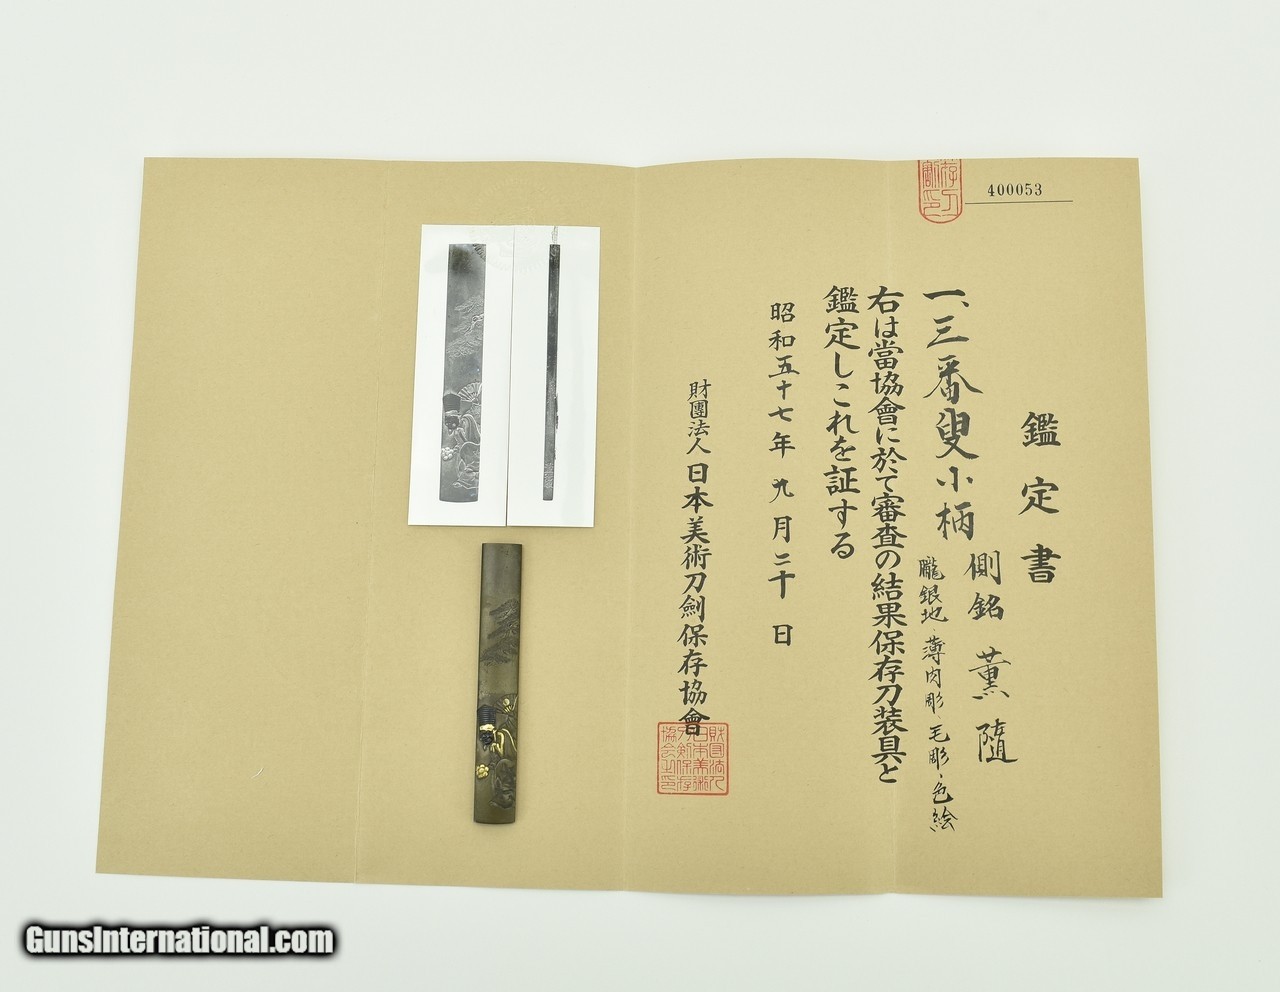 400053
鑑定書
一、三番叟小柄
側銘 薫随
朧銀地、薄肉彫、毛彫、色絵
右は當協會に於て審査の結果保存刀装具と
鑑定しこれを証する
昭和五十七年九月二十日
財團法人日本美術刀劍保存協會
財団法人日本美術刀剣保存協会之印
GunsInternational.com